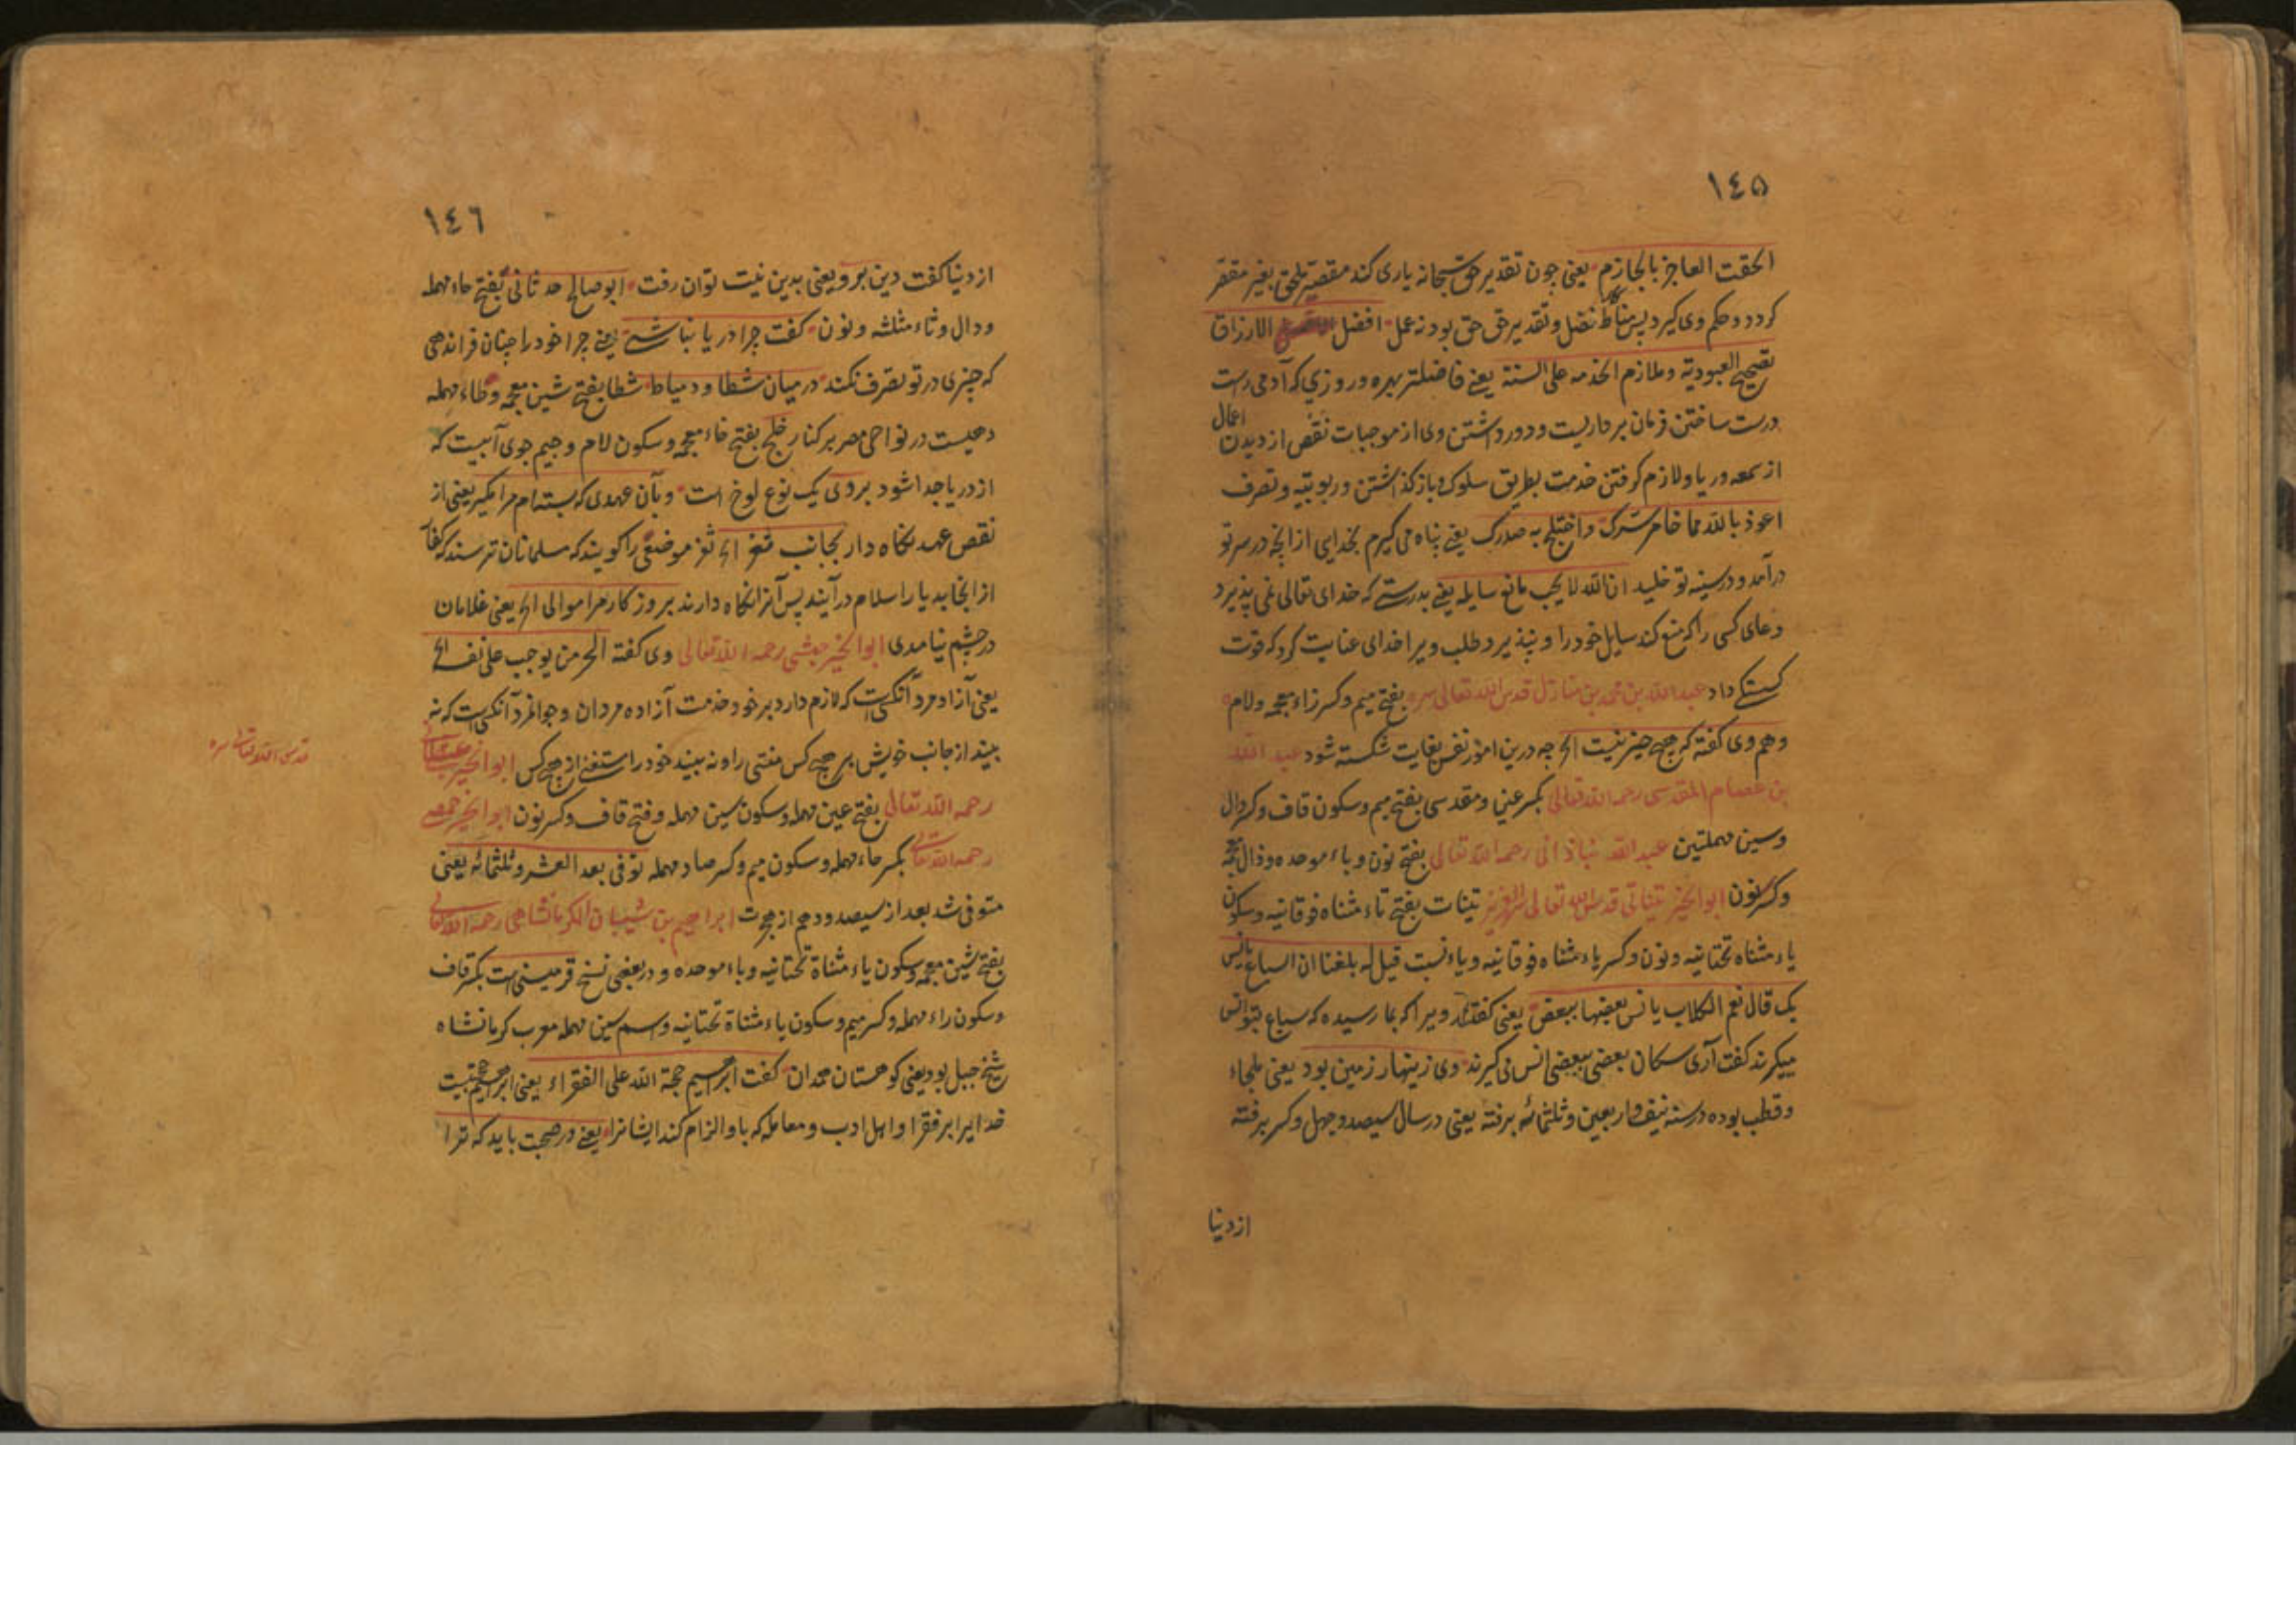 ١٤٥
الحقت العاجز بالحازم یعنی چون تقدیر حق سبحانه یاری کند مقصر ملحق بغیر مقصر
کردد و حکم وی کیرد پس مناط کار فضل و تقدیر حق بود نه عمل افضل الارزاق
تصحیح العبودیة و ملازم الخدمه علی السنة یعنی فاضلتر بهره و روزی که آدمی راست
درست ساختن فرمان برداریست و دور داشتن وی از موجبات نقص از دیدن اعمال
از سمعه و ریا و لازم کرفتن خدمت بطریق سلوک و باز کذاشتن و ربوبیه و تصرف
اعوذ بالله مما خامر سرک و اختلج به صدرک یعنی پناه می کیرم بخدای از انچه در سر تو
درآمد و در سینه تو خلید ان الله لا یجب مانع سایله یعنی بدرستی که خدای تعالی نمی پذیرد
دعای کسی را که منع کند سایل خود را و نپذیرد طلب ویرا خدای عنایت کرد که قوت
کستکی داد عبد الله بن محمد بن منازل قدس الله تعالی سره بفتح میم و کسر زاء معجمه و لام
و هم وی کفته که هیچ چیز نیست الخ چه درین امور نفس بغایت شکسته شود عبد الله
بن عصام المقدسی رحمه الله تعالی بکسر عین و مقدسی بفتح میم و سکون قاف و کسر دال
و سین مهملتین عبد الله نباذانی رحمه الله تعالی بفتح نون و باء موحده و ذال معجمه
و کسر نون ابو الخیر تیناتی قدس الله تعالی سره العزیز تینات بفتح تاء مثناه فوقانیه و سکون
یاء مثناه تحتانیه و نون و کسر یاء مثناه فوقانیه و یاء نسبت قیل له بلغنا ان السباع یانس
بک قال نعم الکلاب یانس بعضها ببعض یعنی کفته‌اند ویرا که بما رسیده که سباع بتو انس
میکیرند کفت آری سکان بعضی ببعضی انس می کیرند وی زینهار زمین بود یعنی ملجاء
و قطب بوده در سنه نیف و اربعین و ثلثمائه برفته یعنی در سال سیصد و چهل و کسر برفته
از دنیا
١٤٦
از دنیا کفت دین برو یعنی بدین نیت توان رفت ابو صالح حدثانی بفتح حاء مهمله
و دال و ثاء مثلثه و نون کفت چرا دریا نباشی یعنی چرا خود را چنان فرا ندهی
که چیزی در تو تصرف نکند درمیان شطا و دمیاط شطا بفتح شین معجمه و طاء مهمله
دهیست در نواحی مصر بر کنار خلج بفتح خاء معجمه و سکون لام و جیم جوی آبیست که
از دریا جدا شود بردی یک نوع لوخ است و بآن عهدی که بسته‌ام مرا مکیر یعنی از
نقص عهد نکاه دار بجانب ثغر الخ ثغر موضعی را کویند که مسلمانان ترسند که کفار
از انجا بدیار اسلام درآیند پس آنرا نکاه دارند بروز کار مرا موالی الخ یعنی غلامان
در چشم نیامدی ابو الخیر حبشی رحمه الله تعالی وی کفته الحر من یوجب علی نفسه الخ
یعنی آزاد مرد آنکس است که لازم دارد بر خود خدمت آزاده مردان و جوانمرد آنکس است که نه
بیند از جانب خویش بر هیچ کس منتی را و نه بیند خود را مستغنی از هیچ کس ابو الخیر عسقلانی
رحمه الله تعالی بفتح عین مهمله و سکون سین مهمله و فتح قاف و کسر نون ابو الخیر حمصی
رحمه الله تعالی بکسر حاء مهمله و سکون میم و کسر صاد مهمله توفی بعد العشر و ثلثمائه یعنی
متوفی شد بعد از سیصد و دهم از هجرت ابراهیم بن شیبان الکرمانشاهی رحمه الله تعالی
قدس الله تعالی سره
بفتح شین معجمه و سکون یاء مثناة تحتانیه و باء موحده و در بعضی نسخ قرمیسنی است بکسر قاف
و سکون راء مهمله و کسر میم و سکون یاء مثناة تحتانیه و سین مهمله معرب کرمانشاه
شیخ جبل بود یعنی کوهستان همدان کفت ابراهیم حجة الله علی الفقراء یعنی ابراهیم حجت
خدایرا بر فقرا و اهل ادب و معامله که باو الزام کند ایشانرا یعنی در صحبت باید که ترا